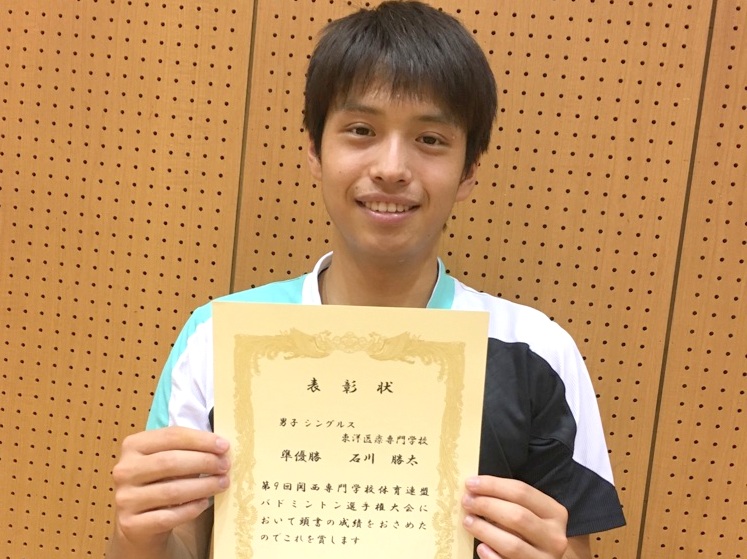 表彰状
男子シングルス
東洋医療専門学校
準優勝 石川 勝太
第9回関西専門学校体育連盟
バドミントン選手権大会に
おいて頭書の成績をおさめた
のでこれを賞します